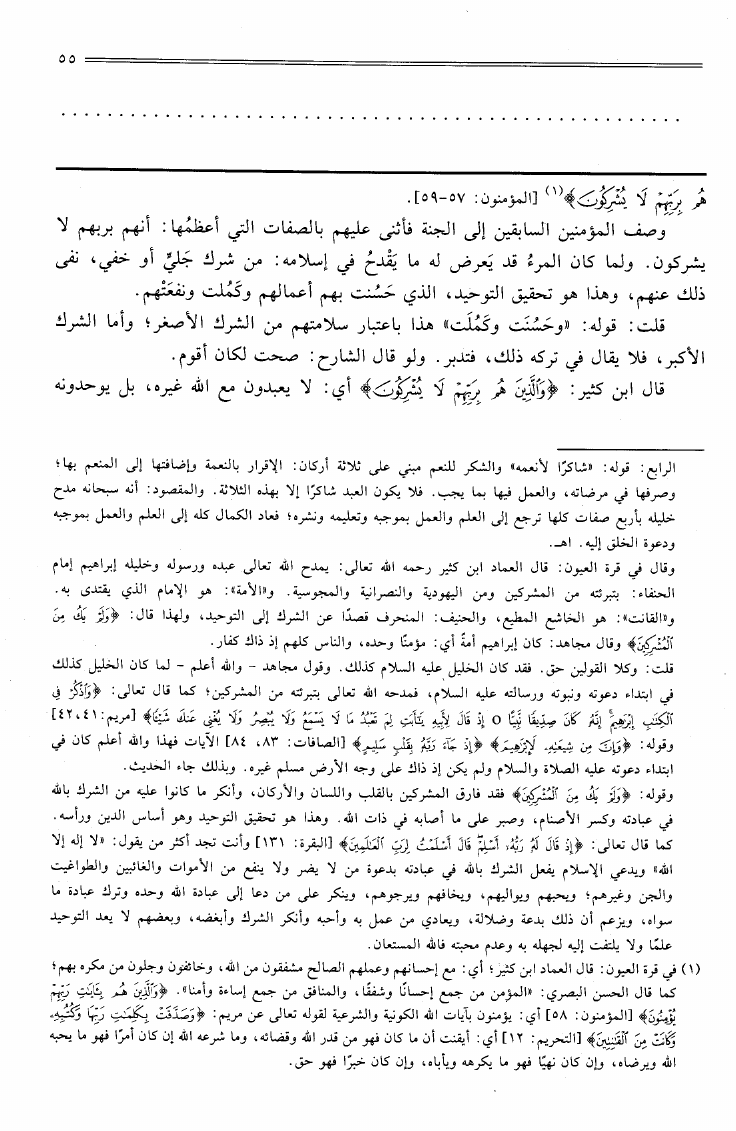 ٥٥
هُم بِرَبِّهِمْ لَا يُشْرِكُونَ﴾(١) [المؤمنون: ٥٧-٥٩].
وصف المؤمنين السابقين إلى الجنة فأثنى عليهم بالصفات التي أعظمُها: أنهم بربهم لا
يشركون. ولما كان المرءُ قد يَعرض له ما يَقْدحُ في إسلامه: من شرك جَليٍّ أو خفي، نفى
ذلك عنهم، وهذا هو تحقيق التوحيد، الذي حَسُنت بهم أعمالهم وكَمُلت ونفعَتْهم.
قلت: قوله: «وحَسُنَت وكَمُلَت» هذا باعتبار سلامتهم من الشرك الأصغر؛ وأما الشرك
الأكبر، فلا يقال في تركه ذلك، فتدبر. ولو قال الشارح: صحت لكان أقوم.
قال ابن كثير: ﴿وَٱلَّذِينَ هُم بِرَبِّهِمْ لَا يُشْرِكُونَ﴾ أي: لا يعبدون مع الله غيره، بل يوحدونه
الرابع: قوله: «شاكرًا لأنعمه» والشكر للنعم مبني على ثلاثة أركان: الإقرار بالنعمة وإضافتها إلى المنعم بها؛
وصرفها في مرضاته، والعمل فيها بما يجب. فلا يكون العبد شاكرًا إلا بهذه الثلاثة. والمقصود: أنه سبحانه مدح
خليله بأربع صفات كلها ترجع إلى العلم والعمل بموجبه وتعليمه ونشره؛ فعاد الكمال كله إلى العلم والعمل بموجبه
ودعوة الخلق إليه. اهـ.
وقال في قرة العيون: قال العماد ابن كثير رحمه الله تعالى: يمدح الله تعالى عبده ورسوله وخليله إبراهيم إمام
الحنفاء: بتبرئته من المشركين ومن اليهودية والنصرانية والمجوسية. و«الأمة»: هو الإمام الذي يقتدى به.
و«القانت»: هو الخاشع المطيع، والحنيف: المنحرف قصدًا عن الشرك إلى التوحيد، ولهذا قال: ﴿وَلَمْ يَكُ مِنَ
ٱلْمُشْرِكِينَ﴾ وقال مجاهد: كان إبراهيم أمةً أي: مؤمنًا وحده، والناس كلهم إذ ذاك كفار.
قلت: وكلا القولين حق. فقد كان الخليل عليه السلام كذلك. وقول مجاهد - والله أعلم - لما كان الخليل كذلك
في ابتداء دعوته ونبوته ورسالته عليه السلام، فمدحه الله تعالى بتبرئته من المشركين؛ كما قال تعالى: ﴿وَٱذْكُرْ فِى
ٱلْكِتَٰبِ إِبْرَٰهِيمَ إِنَّهُۥ كَانَ صِدِّيقًا نَّبِيًّا ○ إِذْ قَالَ لِأَبِيهِ يَٰٓأَبَتِ لِمَ تَعْبُدُ مَا لَا يَسْمَعُ وَلَا يُبْصِرُ وَلَا يُغْنِى عَنكَ شَيْـًٔا﴾ [مريم:٤١،٤٢]
وقوله: ﴿وَإِنَّ مِن شِيعَتِهِۦ لَإِبْرَٰهِيمَ﴾ ﴿إِذْ جَآءَ رَبَّهُۥ بِقَلْبٍ سَلِيمٍ﴾ [الصافات: ٨٣، ٨٤] الآيات فهذا والله أعلم كان في
ابتداء دعوته عليه الصلاة والسلام ولم يكن إذ ذاك على وجه الأرض مسلم غيره. وبذلك جاء الحديث.
وقوله: ﴿وَلَمْ يَكُ مِنَ ٱلْمُشْرِكِينَ﴾ فقد فارق المشركين بالقلب واللسان والأركان، وأنكر ما كانوا عليه من الشرك بالله
في عبادته وكسر الأصنام، وصبر على ما أصابه في ذات الله. وهذا هو تحقيق التوحيد وهو أساس الدين ورأسه.
كما قال تعالى: ﴿إِذْ قَالَ لَهُۥ رَبُّهُۥٓ أَسْلِمْ قَالَ أَسْلَمْتُ لِرَبِّ ٱلْعَٰلَمِينَ﴾ [البقرة: ١٣١] وأنت تجد أكثر من يقول: «لا إله إلا
الله» ويدعي الإسلام يفعل الشرك بالله في عبادته بدعوة من لا يضر ولا ينفع من الأموات والغائبين والطواغيت
والجن وغيرهم؛ ويحبهم ويواليهم، ويخافهم ويرجوهم، وينكر على من دعا إلى عبادة الله وحده وترك عبادة ما
سواه، ويزعم أن ذلك بدعة وضلالة، ويعادي من عمل به وأحبه وأنكر الشرك وأبغضه، وبعضهم لا يعد التوحيد
علمًا ولا يلتفت إليه لجهله به وعدم محبته فالله المستعان.
(١) في قرة العيون: قال العماد ابن كثير؛ أي: مع إحسانهم وعملهم الصالح مشفقون من الله، وخائفون وجلون من مكره بهم؛
كما قال الحسن البصري: «المؤمن من جمع إحسانًا وشفقًا، والمنافق من جمع إساءة وأمنا». ﴿وَٱلَّذِينَ هُم بِـَٔايَٰتِ رَبِّهِمْ
يُؤْمِنُونَ﴾ [المؤمنون: ٥٨] أي: يؤمنون بآيات الله الكونية والشرعية لقوله تعالى عن مريم: ﴿وَصَدَّقَتْ بِكَلِمَٰتِ رَبِّهَا وَكُتُبِهِۦ
وَكَانَتْ مِنَ ٱلْقَٰنِتِينَ﴾ [التحريم: ١٢] أي: أيقنت أن ما كان فهو من قدر الله وقضائه، وما شرعه الله إن كان أمرًا فهو ما يحبه
الله ويرضاه، وإن كان نهيًا فهو ما يكرهه ويأباه، وإن كان خبرًا فهو حق.